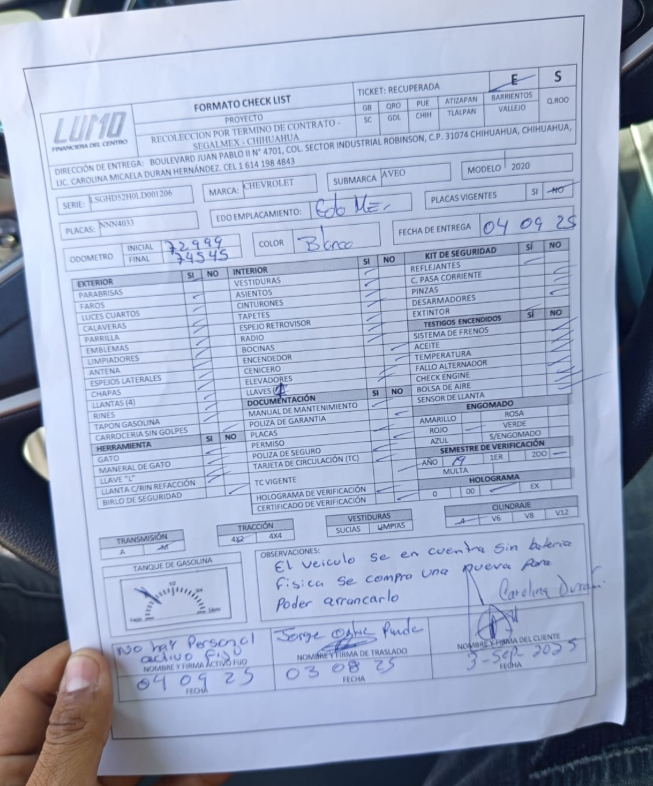 LUMO
FINANCIERA DEL CENTRO
FORMATO CHECK LIST
PROYECTO
RECOLECCION POR TERMINO DE CONTRATO -
SEGALMEX - CHIHUAHUA
TICKET: RECUPERADA
E S
GB QRO PUE ATIZAPAN BARRIENTOS Q.ROO
SC GDL CHIH TLALPAN VALLEJO
DIRECCIÓN DE ENTREGA: BOULEVARD JUAN PABLO II N° 4701, COL. SECTOR INDUSTRIAL ROBINSON, C.P. 31074 CHIHUAHUA, CHIHUAHUA,
LIC. CAROLINA MICAELA DURAN HERNÁNDEZ. CEL 1 614 198 4843
SERIE: LSGHD52H0LD001206 MARCA: CHEVROLET SUBMARCA AVEO MODELO 2020
PLACAS: NNN4033 EDO EMPLACAMIENTO: Edo Mex. PLACAS VIGENTES SI NO
ODOMETRO INICIAL 72999
FINAL 74545
COLOR Blanco FECHA DE ENTREGA 04 09 25
EXTERIOR SI NO
PARABRISAS
FAROS
LUCES CUARTOS
CALAVERAS
PARRILLA
EMBLEMAS
LIMPIADORES
ANTENA
ESPEJOS LATERALES
CHAPAS
LLANTAS (4)
RINES
TAPON GASOLINA
CARROCERIA SIN GOLPES
HERRAMIENTA SI NO
GATO
MANERAL DE GATO
LLAVE "L"
LLANTA C/RIN REFACCIÓN
BIRLO DE SEGURIDAD
INTERIOR SI NO
VESTIDURAS
ASIENTOS
CINTURONES
TAPETES
ESPEJO RETROVISOR
RADIO
BOCINAS
ENCENDEDOR
CENICERO
ELEVADORES
LLAVES
DOCUMENTACIÓN SI NO
MANUAL DE MANTENIMIENTO
POLIZA DE GARANTIA
PLACAS
PERMISO
POLIZA DE SEGURO
TARJETA DE CIRCULACIÓN (TC)
TC VIGENTE
HOLOGRAMA DE VERIFICACIÓN
CERTIFICADO DE VERIFICACIÓN
KIT DE SEGURIDAD SÍ NO
REFLEJANTES
C. PASA CORRIENTE
PINZAS
DESARMADORES
EXTINTOR
TESTIGOS ENCENDIDOS SÍ NO
SISTEMA DE FRENOS
ACEITE
TEMPERATURA
FALLO ALTERNADOR
CHECK ENGINE
BOLSA DE AIRE
SENSOR DE LLANTA
ENGOMADO
AMARILLO ROSA
ROJO VERDE
AZUL S/ENGOMADO
SEMESTRE DE VERIFICACIÓN
AÑO 19 1ER 2DO
MULTA
HOLOGRAMA
0 00 EX
TRANSMISIÓN
A M
TRACCIÓN
4X2 4X4
VESTIDURAS
SUCIAS LIMPIAS
CILINDRAJE
4 V6 V8 V12
TANQUE DE GASOLINA
1/2
OBSERVACIONES:
El veiculo se en cuentra sin bateria
fisica se compro una nueva para
Poder arrancarlo
Carolina Duran
No hay Personal
activo Fijo
NOMBRE Y FIRMA ACTIVO FIJO
04 09 25
FECHA
Jorge
NOMBRE Y FIRMA DE TRASLADO
03 08 25
FECHA
NOMBRE Y FIRMA DEL CLIENTE
3-Sep-2025
FECHA